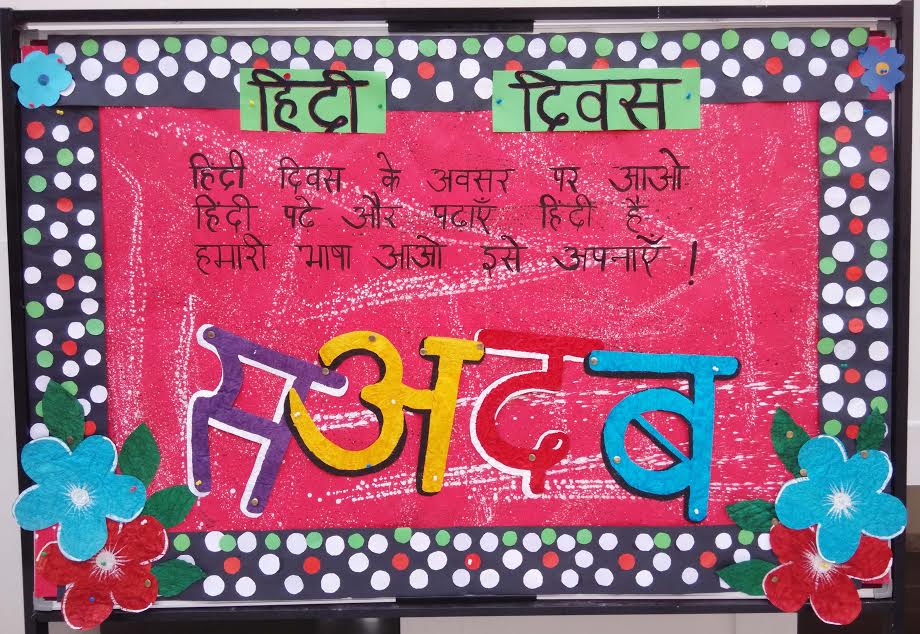 हिंदी दिवस
हिंदी दिवस के अवसर पर आओ
हिंदी पढे और पढाएँ हिंदी है
हमारी भाषा आओ इसे अपनाएँ !
म अ द ब